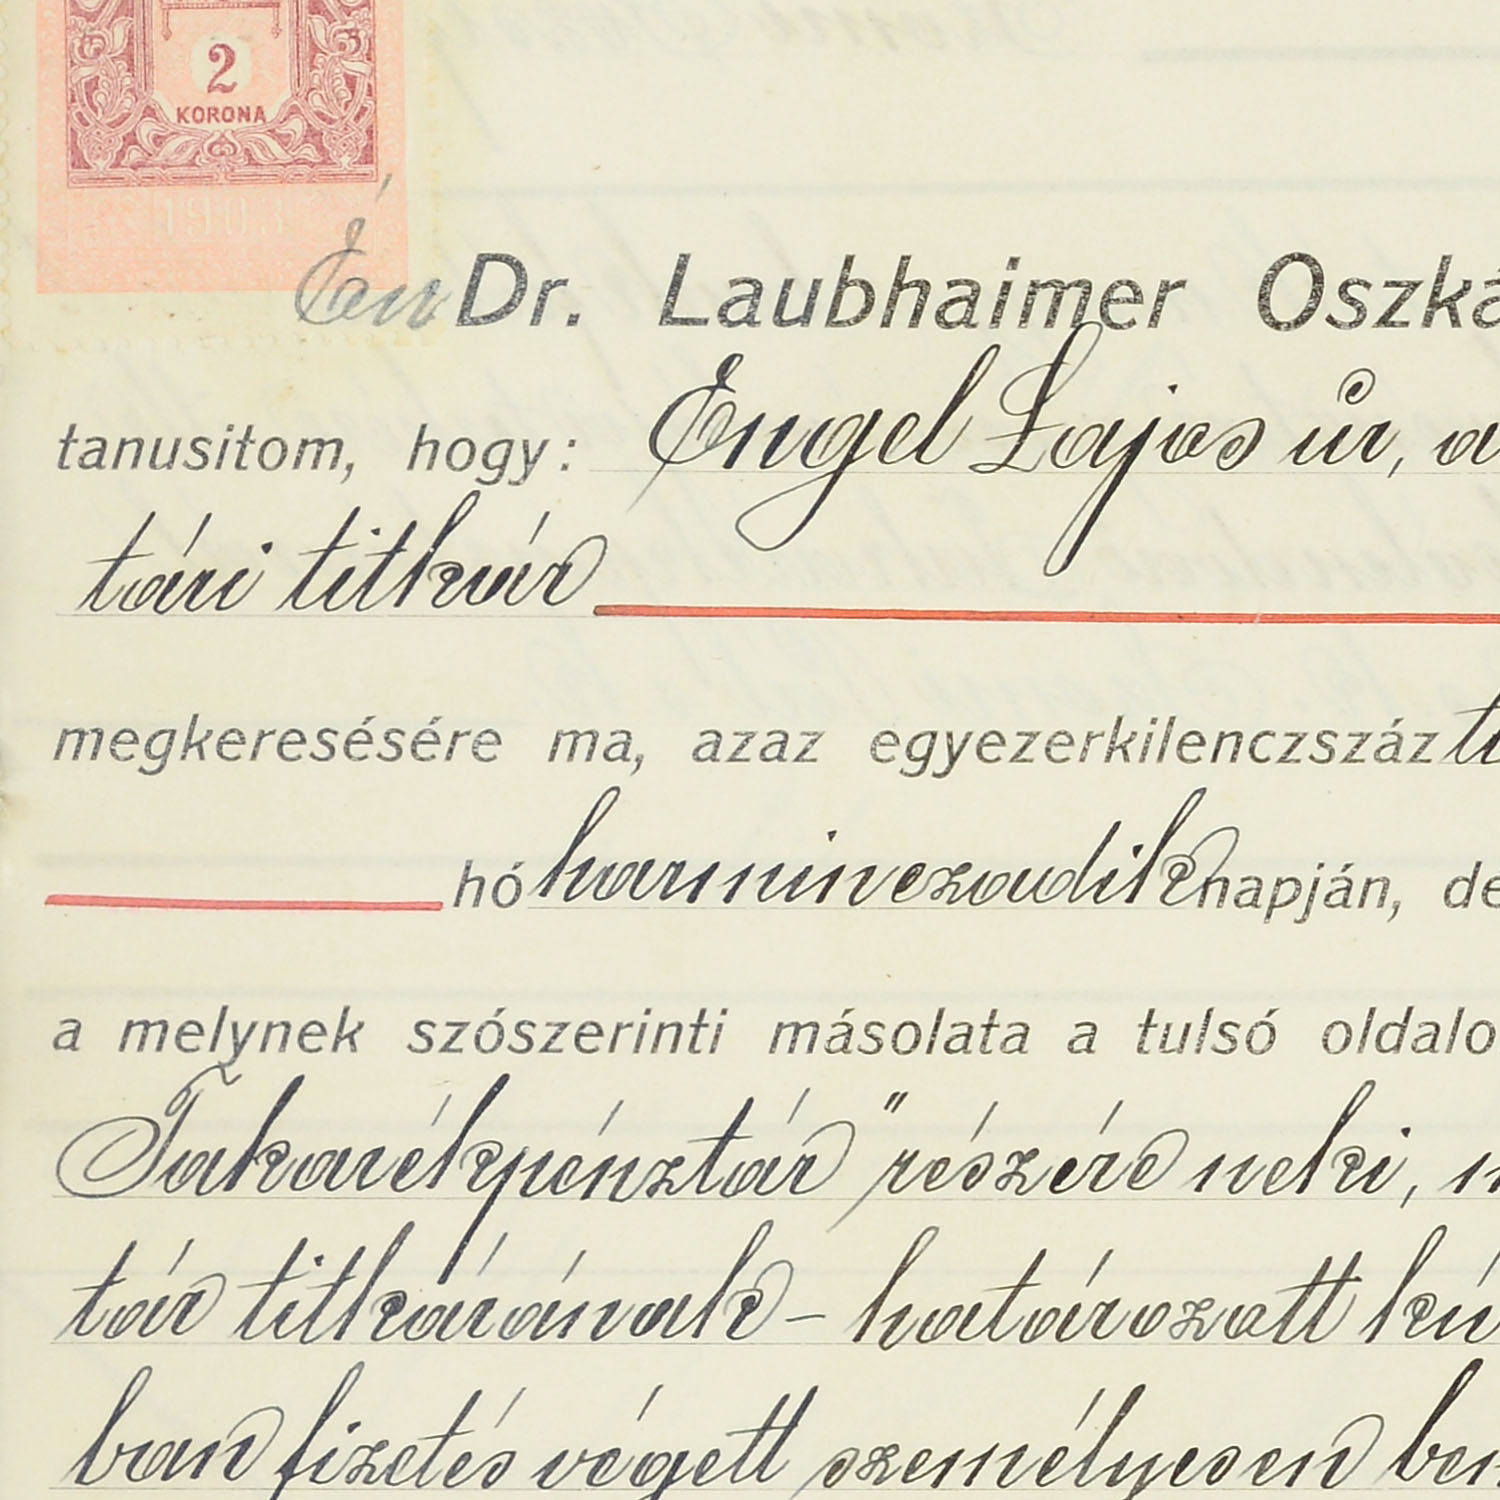 2
KORONA
1903
Én Dr. Laubhaimer Oszká
tanusitom, hogy: Engel Lajos úr, a
tári titkár
megkeresésére ma, azaz egyezerkilenczszáz ti
hó harminczadik napján, de
a melynek szószerinti másolata a tulsó oldalo
Takarékpénztár" részére neki, m
tár titkárának – határozott kí
ban fizetés végett személyesen bem